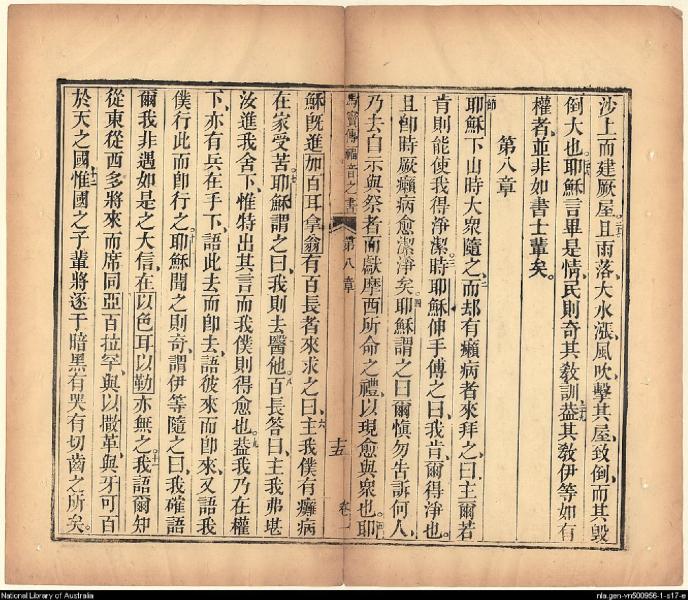 沙上而建厥屋。且雨落、大水漲、風吹擊其屋、致倒、而其毀
倒大也。耶穌言畢是情、民則奇其教訓、葢其教伊等如有
權者、並非如書士輩矣。
第八章
耶穌下山時大衆隨之、而却有癩病者來拜之、曰主爾若
肯則能使我得淨潔。時耶穌伸手傅之曰、我肯、爾得淨也。
且卽時厥癩病愈潔淨矣。耶穌謂之曰、爾慎勿吿訴何人、
乃去自示與祭者、而獻摩西所命之禮、以現愈與衆也。耶
馬竇傳福音之書
第八章
十五
卷一
穌旣進加百耳拿翁、有百長者來求之曰、主我僕有癱病
在家受苦。耶穌謂之曰、我則去醫他。百長答曰、主我弗堪
汝進我舍下、惟特出其言而我僕則得愈也。葢我乃在權
下、亦有兵在手下、語此去而卽去、語彼來而卽來、又語我
僕行此而卽行之。耶穌聞之則奇、謂伊等隨之曰、我確語
爾、我非遇如是之大信、在以色耳以勒亦無之。我語爾知
從東從西多將來而席同亞百拉罕、與以撒革、與牙可百
於天之國、惟國之子輩將逐于暗黑、有哭有切齒之所矣。
National Library of Australia
nla.gen-vn500956-1-s17-e